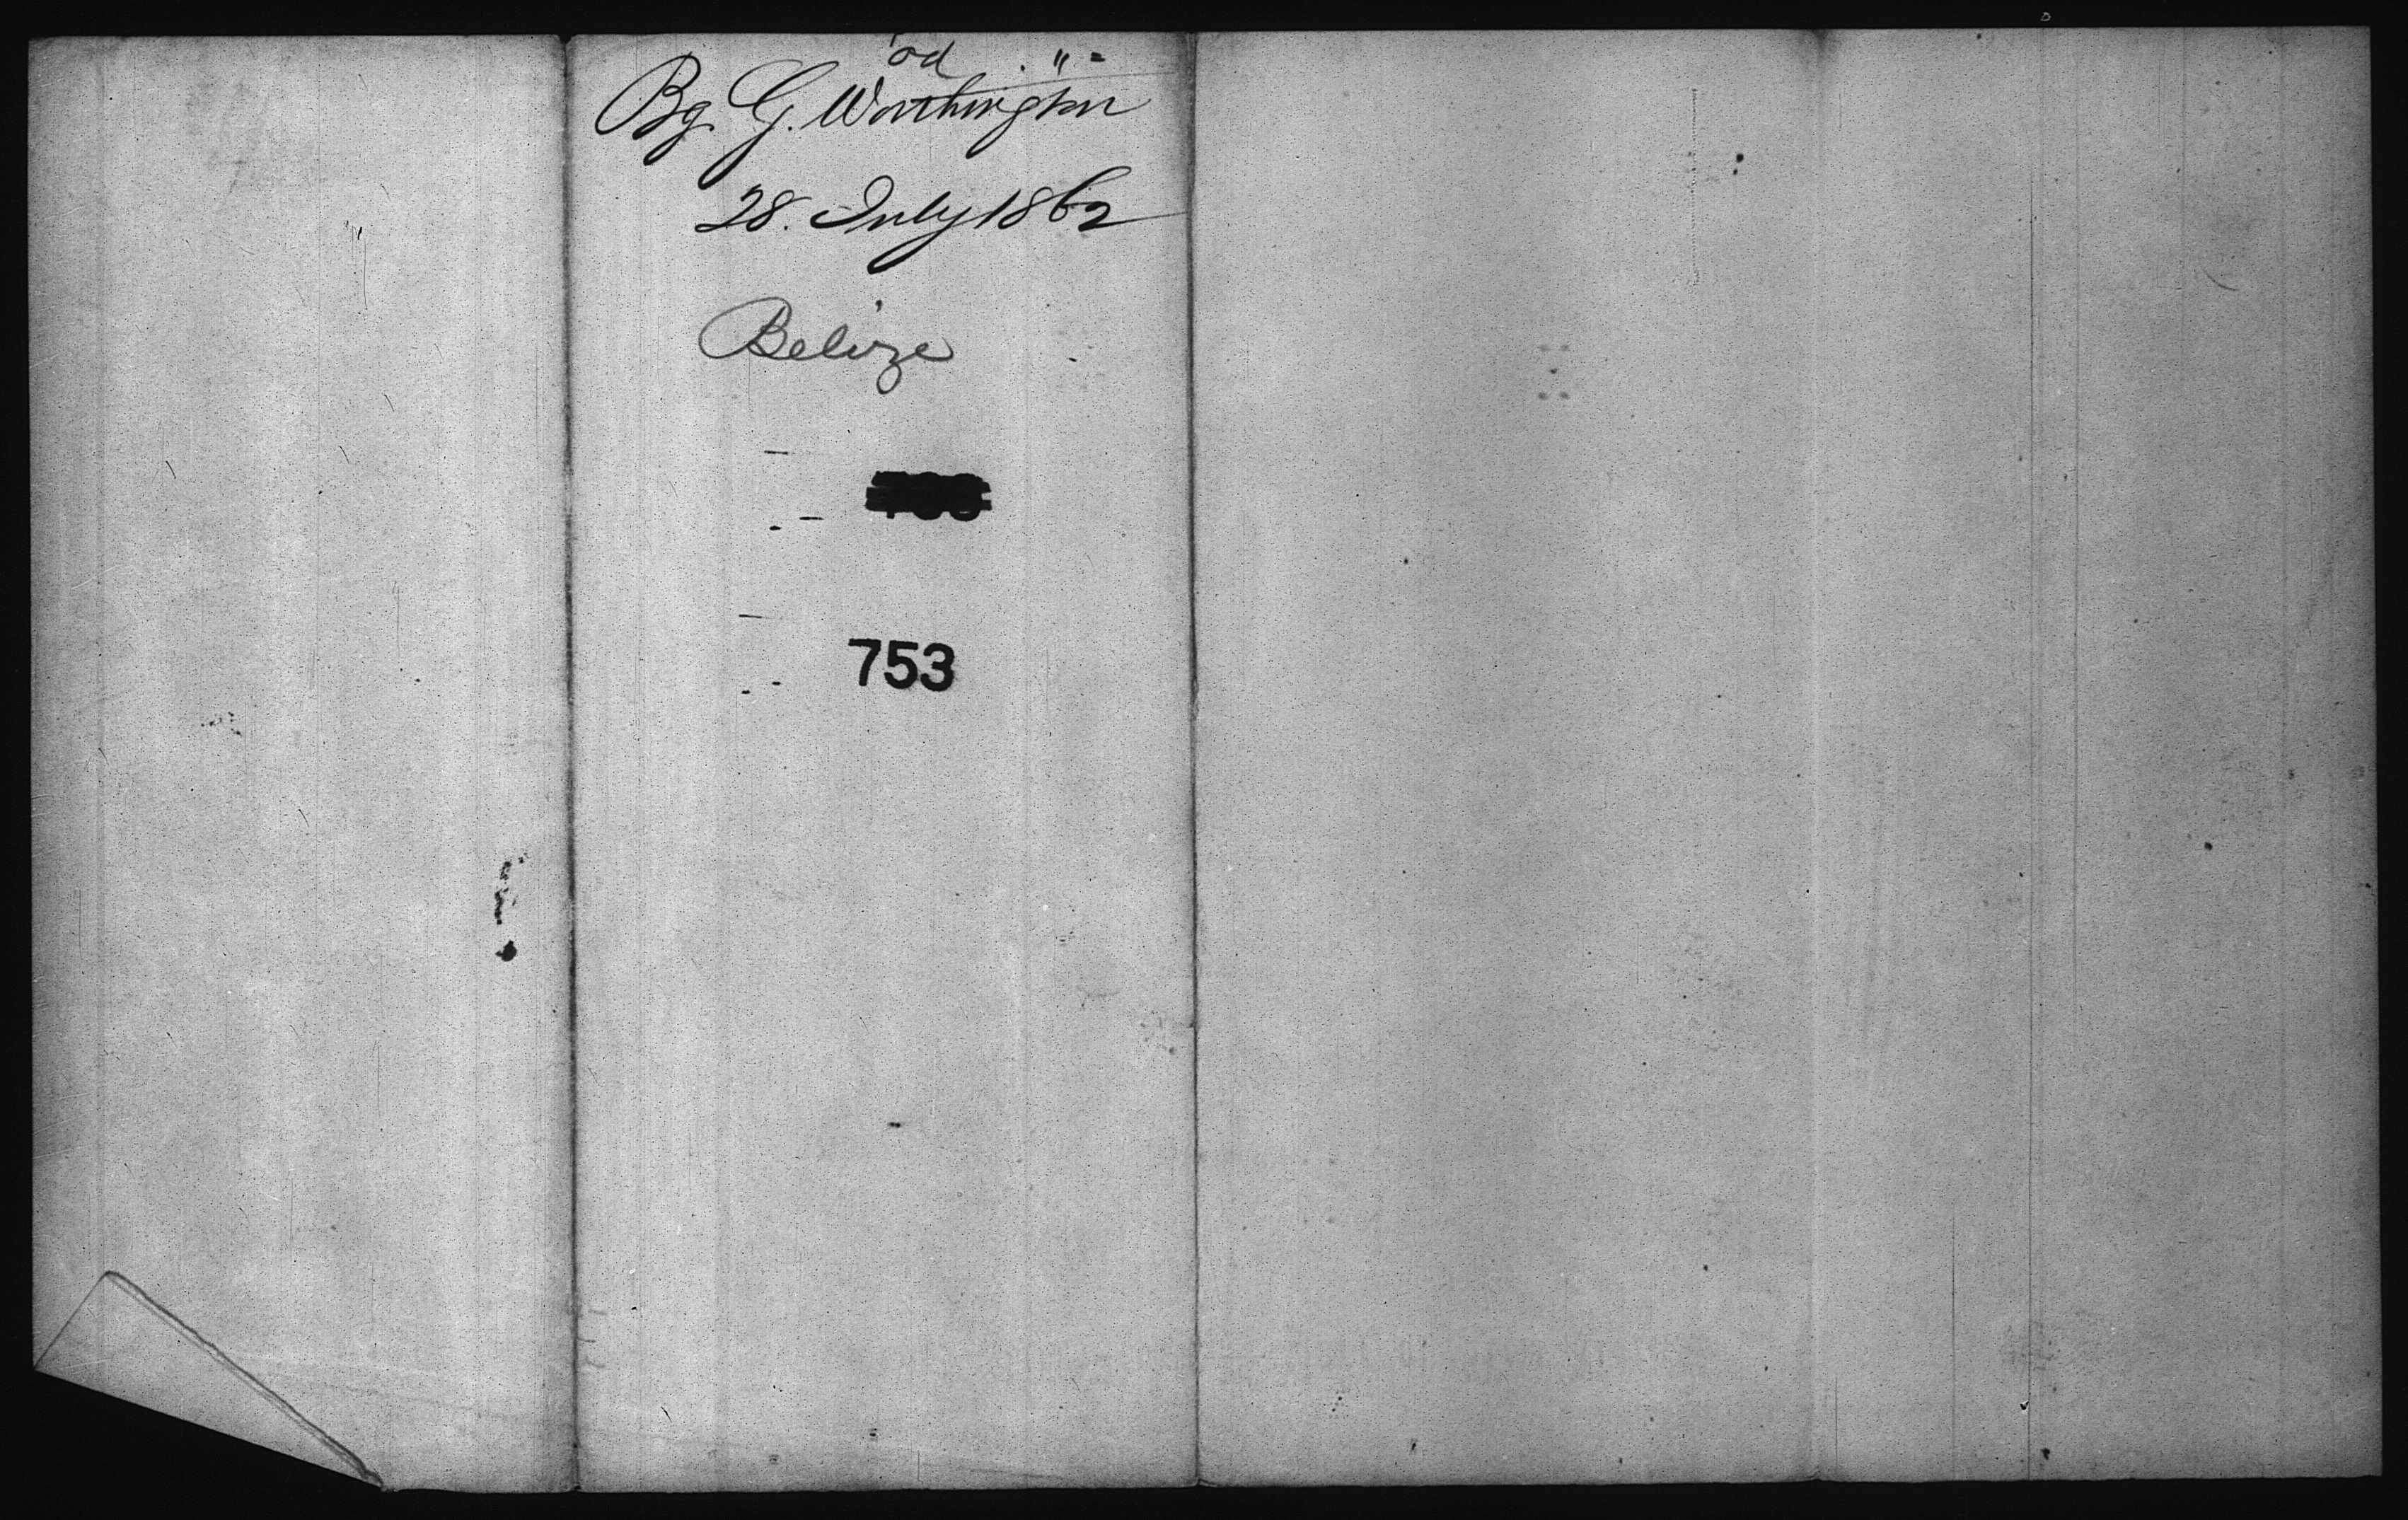 od
Bg. G. Worthington
28. July 1862
Belize
753